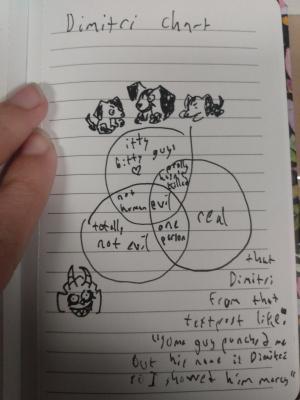 Dimitri Chart
itty
bitty guys
totally
killed
not
human
evil
real
totally
not evil
one
person
that
Dimitri
From that
textpost like,
"some guy punched me
but his name is Dimitri
so I showed him mercy"